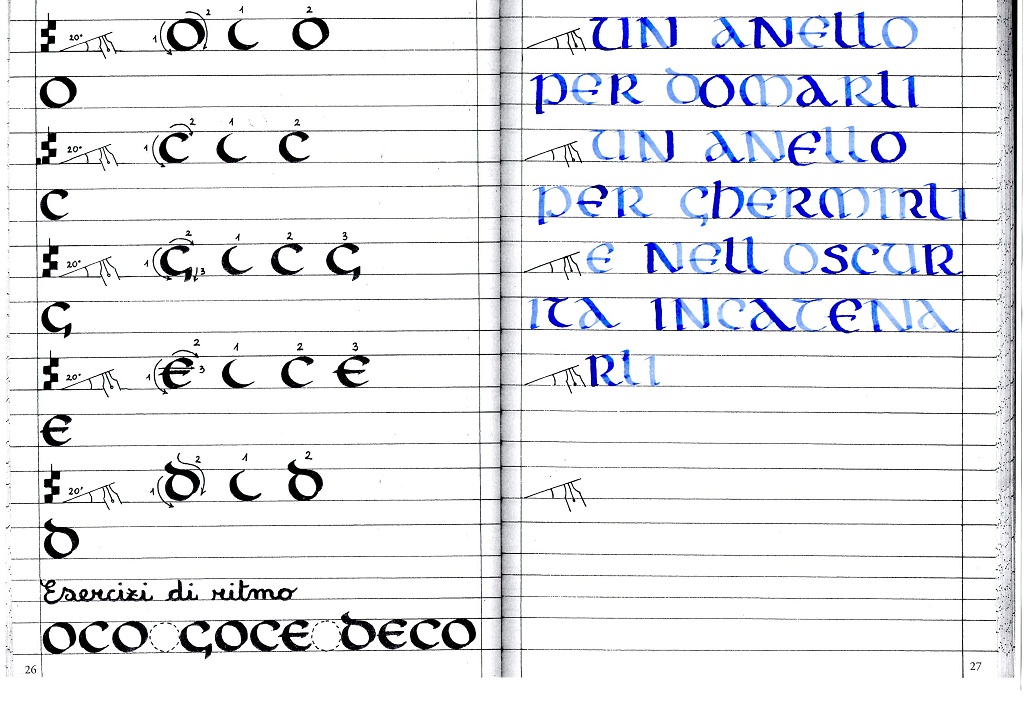 20° 1 2 O 1 C 2 O
O
20° 1 2 C 1 C 2 C
C
20° 1 2 3 G 1 C 2 C 3 G
G
20° 1 2 3 E 1 C 2 C 3 E
E
20° 1 2 D 1 C 2 D
D
Esercizi di ritmo
OCO GOCE DECO
26
UN ANELLO
PER DOMARLI
UN ANELLO
PER GHERMIRLI
E NELL OSCUR
ITA INCATENA
RLI
27